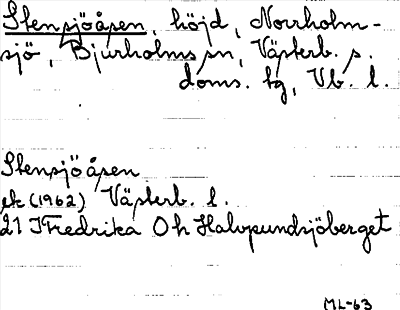 Stensjöåsen, höjd, Norrholm-
sjö, Bjurholms sn, Västerb. s.
doms. tg, Vb. l.
Stensjöåsen
ek (1962) Västerb. l.
21 I Fredrika O h Halvpundsjöberget
ML-63